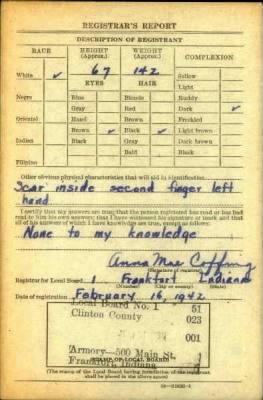 REGISTRAR'S REPORT
DESCRIPTION OF REGISTRANT
RACE HEIGHT (Approx.) WEIGHT (Approx.) COMPLEXION
White ✓ 67 142 Sallow
EYES HAIR Light
Negro Blue Blonde Ruddy
Gray Red Dark ✓
Oriental Hazel Brown Freckled
Brown ✓ Black ✓ Light brown
Indian Black Gray Dark brown
Bald Black
Filipino
Other obvious physical characteristics that will aid in identification
Scar inside second finger left
hand
I certify that my answers are true; that the person registered has read or has had
read to him his own answers; that I have witnessed his signature or mark and that
all of his answers of which I have knowledge are true, except as follows:
None to my knowledge
Anna Mae Coffing
(Signature of registrar)
Registrar for Local Board 1 Frankfort Indiana
(Number) (City or county) (State)
Date of registration February 16, 1942
Local Board No. 1 51
Clinton County 023
001
Armory—500 Main St. 1
Frankfort, Indiana
(STAMP OF LOCAL BOARD)
(The stamp of the Local Board having jurisdiction of the registrant
shall be placed in the above space.)